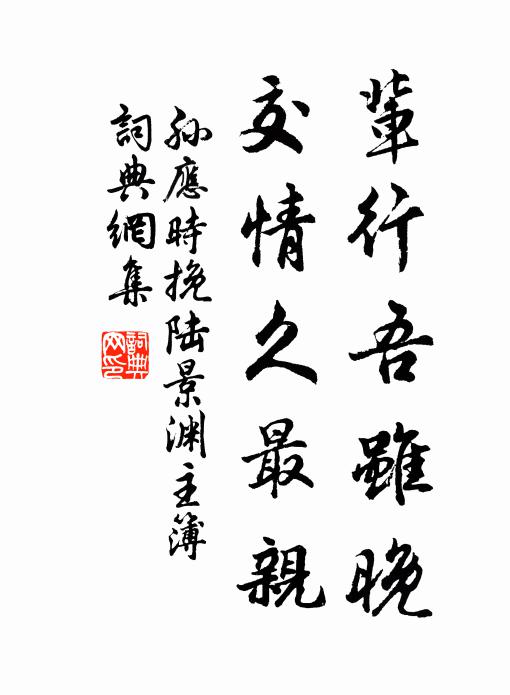 輩行吾雖晚
交情久最親
孫應時挽陸景淵主簿
詞典網集
詞典网印